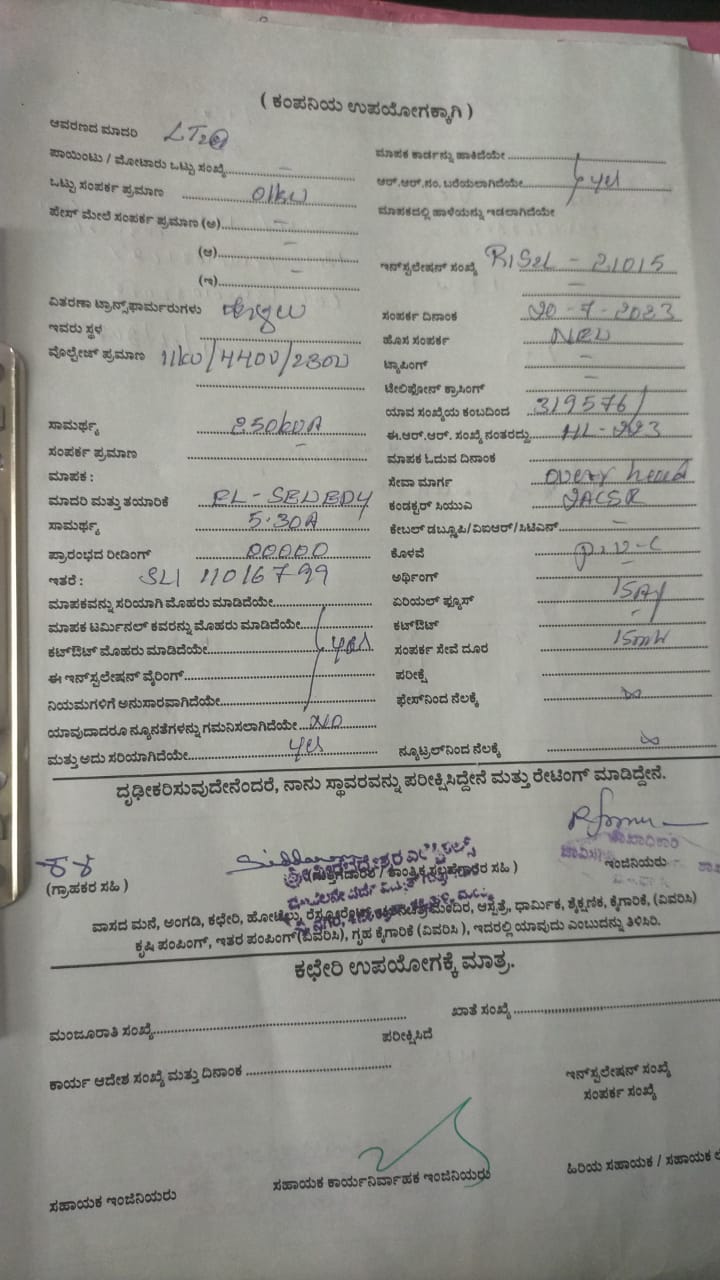 ( ಕಂಪನಿಯ ಉಪಯೋಗಕ್ಕಾಗಿ )
ಆವರಣದ ಮಾದರಿ
ಪಾಯಿಂಟು / ಮೋಟಾರು ಒಟ್ಟು ಸಂಖ್ಯೆ –
ಒಟ್ಟು ಸಂಪರ್ಕ ಪ್ರಮಾಣ 01kw
ಪೇಸ್ ಮೇಲೆ ಸಂಪರ್ಕ ಪ್ರಮಾಣ (ಅ) –
(ಆ) –
(ಇ) –
ವಿತರಣಾ ಟ್ರಾನ್ಸ್‌ಫಾರ್ಮರುಗಳು
ಇವರು ಸ್ಥಳ
ವೊಲ್ಟೇಜ್ ಪ್ರಮಾಣ 11kv/440v/230v
ಸಾಮರ್ಥ್ಯ
ಸಂಪರ್ಕ ಪ್ರಮಾಣ –
ಮಾಪಕ :
ಮಾದರಿ ಮತ್ತು ತಯಾರಿಕೆ
ಸಾಮರ್ಥ್ಯ 5-30A
ಪ್ರಾರಂಭದ ರೀಡಿಂಗ್ 00000
ಇತರೆ : 11016799
ಮಾಪಕವನ್ನು ಸರಿಯಾಗಿ ಮೊಹರು ಮಾಡಿದೆಯೇ
ಮಾಪಕ ಟರ್ಮಿನಲ್ ಕವರನ್ನು ಮೊಹರು ಮಾಡಿದೆಯೇ
ಕಟ್‌ಔಟ್ ಮೊಹರು ಮಾಡಿದೆಯೇ yes
ಈ ಇನ್‌ಸ್ಟಲೇಷನ್ ವೈರಿಂಗ್
ನಿಯಮಗಳಿಗೆ ಅನುಸಾರವಾಗಿದೆಯೇ
ಯಾವುದಾದರೂ ನ್ಯೂನತೆಗಳನ್ನು ಗಮನಿಸಲಾಗಿದೆಯೇ NO
ಮತ್ತು ಅದು ಸರಿಯಾಗಿದೆಯೇ yes
ಮಾಪಕ ಕಾರ್ಡನ್ನು ಹಾಕಿದೆಯೇ
ಆರ್.ಆರ್.ನಂ. ಬರೆಯಲಾಗಿದೆಯೇ yes
ಮಾಪಕದಲ್ಲಿ ಹಾಳೆಯನ್ನು ಇಡಲಾಗಿದೆಯೇ
ಇನ್‌ಸ್ಟಲೇಷನ್ ಸಂಖ್ಯೆ 21015
ಸಂಪರ್ಕ ದಿನಾಂಕ 20-7-2023
ಹೊಸ ಸಂಪರ್ಕ NEW
ಟ್ಯಾಪಿಂಗ್ –
ಟೇಲಿಫೋನ್ ಕ್ರಾಸಿಂಗ್ –
ಯಾವ ಸಂಖ್ಯೆಯ ಕಂಬದಿಂದ 319576/
ಈ.ಆರ್.ಆರ್. ಸಂಖ್ಯೆ ನಂತರದ್ದು
ಮಾಪಕ ಓದುವ ದಿನಾಂಕ
ಸೇವಾ ಮಾರ್ಗ
ಕಂಡಕ್ಟರ್ ಸಿಯುಎ
ಕೇಬಲ್ ಡಬ್ಲ್ಯೂಪಿ/ವಿಐಆರ್/ಸಿಟಿಎನ್ –
ಕೊಳವೆ P.V-C
ಅರ್ಥಿಂಗ್ –
ಏರಿಯಲ್ ಫ್ಯೂಸ್
ಕಟ್‌ಔಟ್ –
ಸಂಪರ್ಕ ಸೇವೆ ದೂರ
ಪರೀಕ್ಷೆ
ಫೇಸ್‌ನಿಂದ ನೆಲಕ್ಕೆ ∞
ನ್ಯೂಟ್ರಲ್‌ನಿಂದ ನೆಲಕ್ಕೆ ∞
ದೃಢೀಕರಿಸುವುದೇನೆಂದರೆ, ನಾನು ಸ್ಥಾವರವನ್ನು ಪರೀಕ್ಷಿಸಿದ್ದೇನೆ ಮತ್ತು ರೇಟಿಂಗ್ ಮಾಡಿದ್ದೇನೆ.
(ಗ್ರಾಹಕರ ಸಹಿ )
ಇಂಜಿನಿಯರು
ವಾಸದ ಮನೆ, ಅಂಗಡಿ, ಕಛೇರಿ, ಹೋಟೆಲ್ಲು, ಆಸ್ಪತ್ರೆ, ಧಾರ್ಮಿಕ, ಶೈಕ್ಷಣಿಕ, ಕೈಗಾರಿಕೆ, (ವಿವರಿಸಿ)
ಕೃಷಿ ಪಂಪಿಂಗ್, ಇತರ ಪಂಪಿಂಗ್(ವಿವರಿಸಿ), ಗೃಹ ಕೈಗಾರಿಕೆ (ವಿವರಿಸಿ ), ಇದರಲ್ಲಿ ಯಾವುದು ಎಂಬುದನ್ನು ತಿಳಿಸಿರಿ.
ಕಛೇರಿ ಉಪಯೋಗಕ್ಕೆ ಮಾತ್ರ.
ಮಂಜೂರಾತಿ ಸಂಖ್ಯೆ
ಖಾತೆ ಸಂಖ್ಯೆ
ಪರೀಕ್ಷಿಸಿದೆ
ಕಾರ್ಯ ಆದೇಶ ಸಂಖ್ಯೆ ಮತ್ತು ದಿನಾಂಕ
ಇನ್‌ಸ್ಟಲೇಷನ್ ಸಂಖ್ಯೆ
ಸಂಪರ್ಕ ಸಂಖ್ಯೆ
ಸಹಾಯಕ ಇಂಜಿನಿಯರು
ಸಹಾಯಕ ಕಾರ್ಯನಿರ್ವಾಹಕ ಇಂಜಿನಿಯರು
ಹಿರಿಯ ಸಹಾಯಕ / ಸಹಾಯಕ